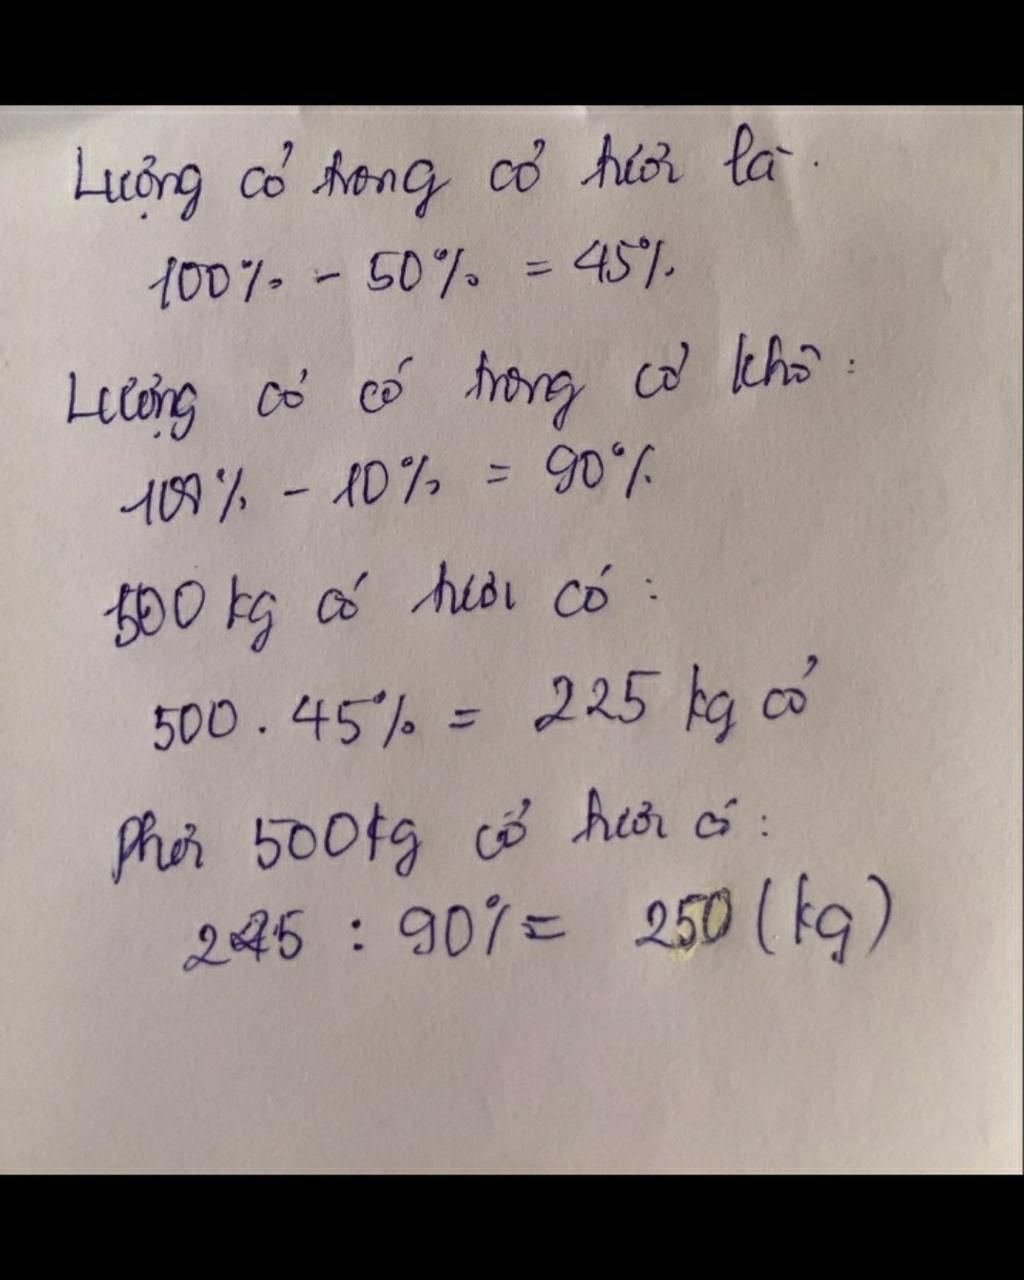 Lượng cỏ trong cỏ tươi là.
100% - 50% = 45%
Lượng cỏ có trong cỏ khô:
100% - 10% = 90%
500 kg cỏ tươi có:
500 . 45% = 225 kg cỏ
Phơi 500kg cỏ tươi có:
225 : 90% = 250 (kg)